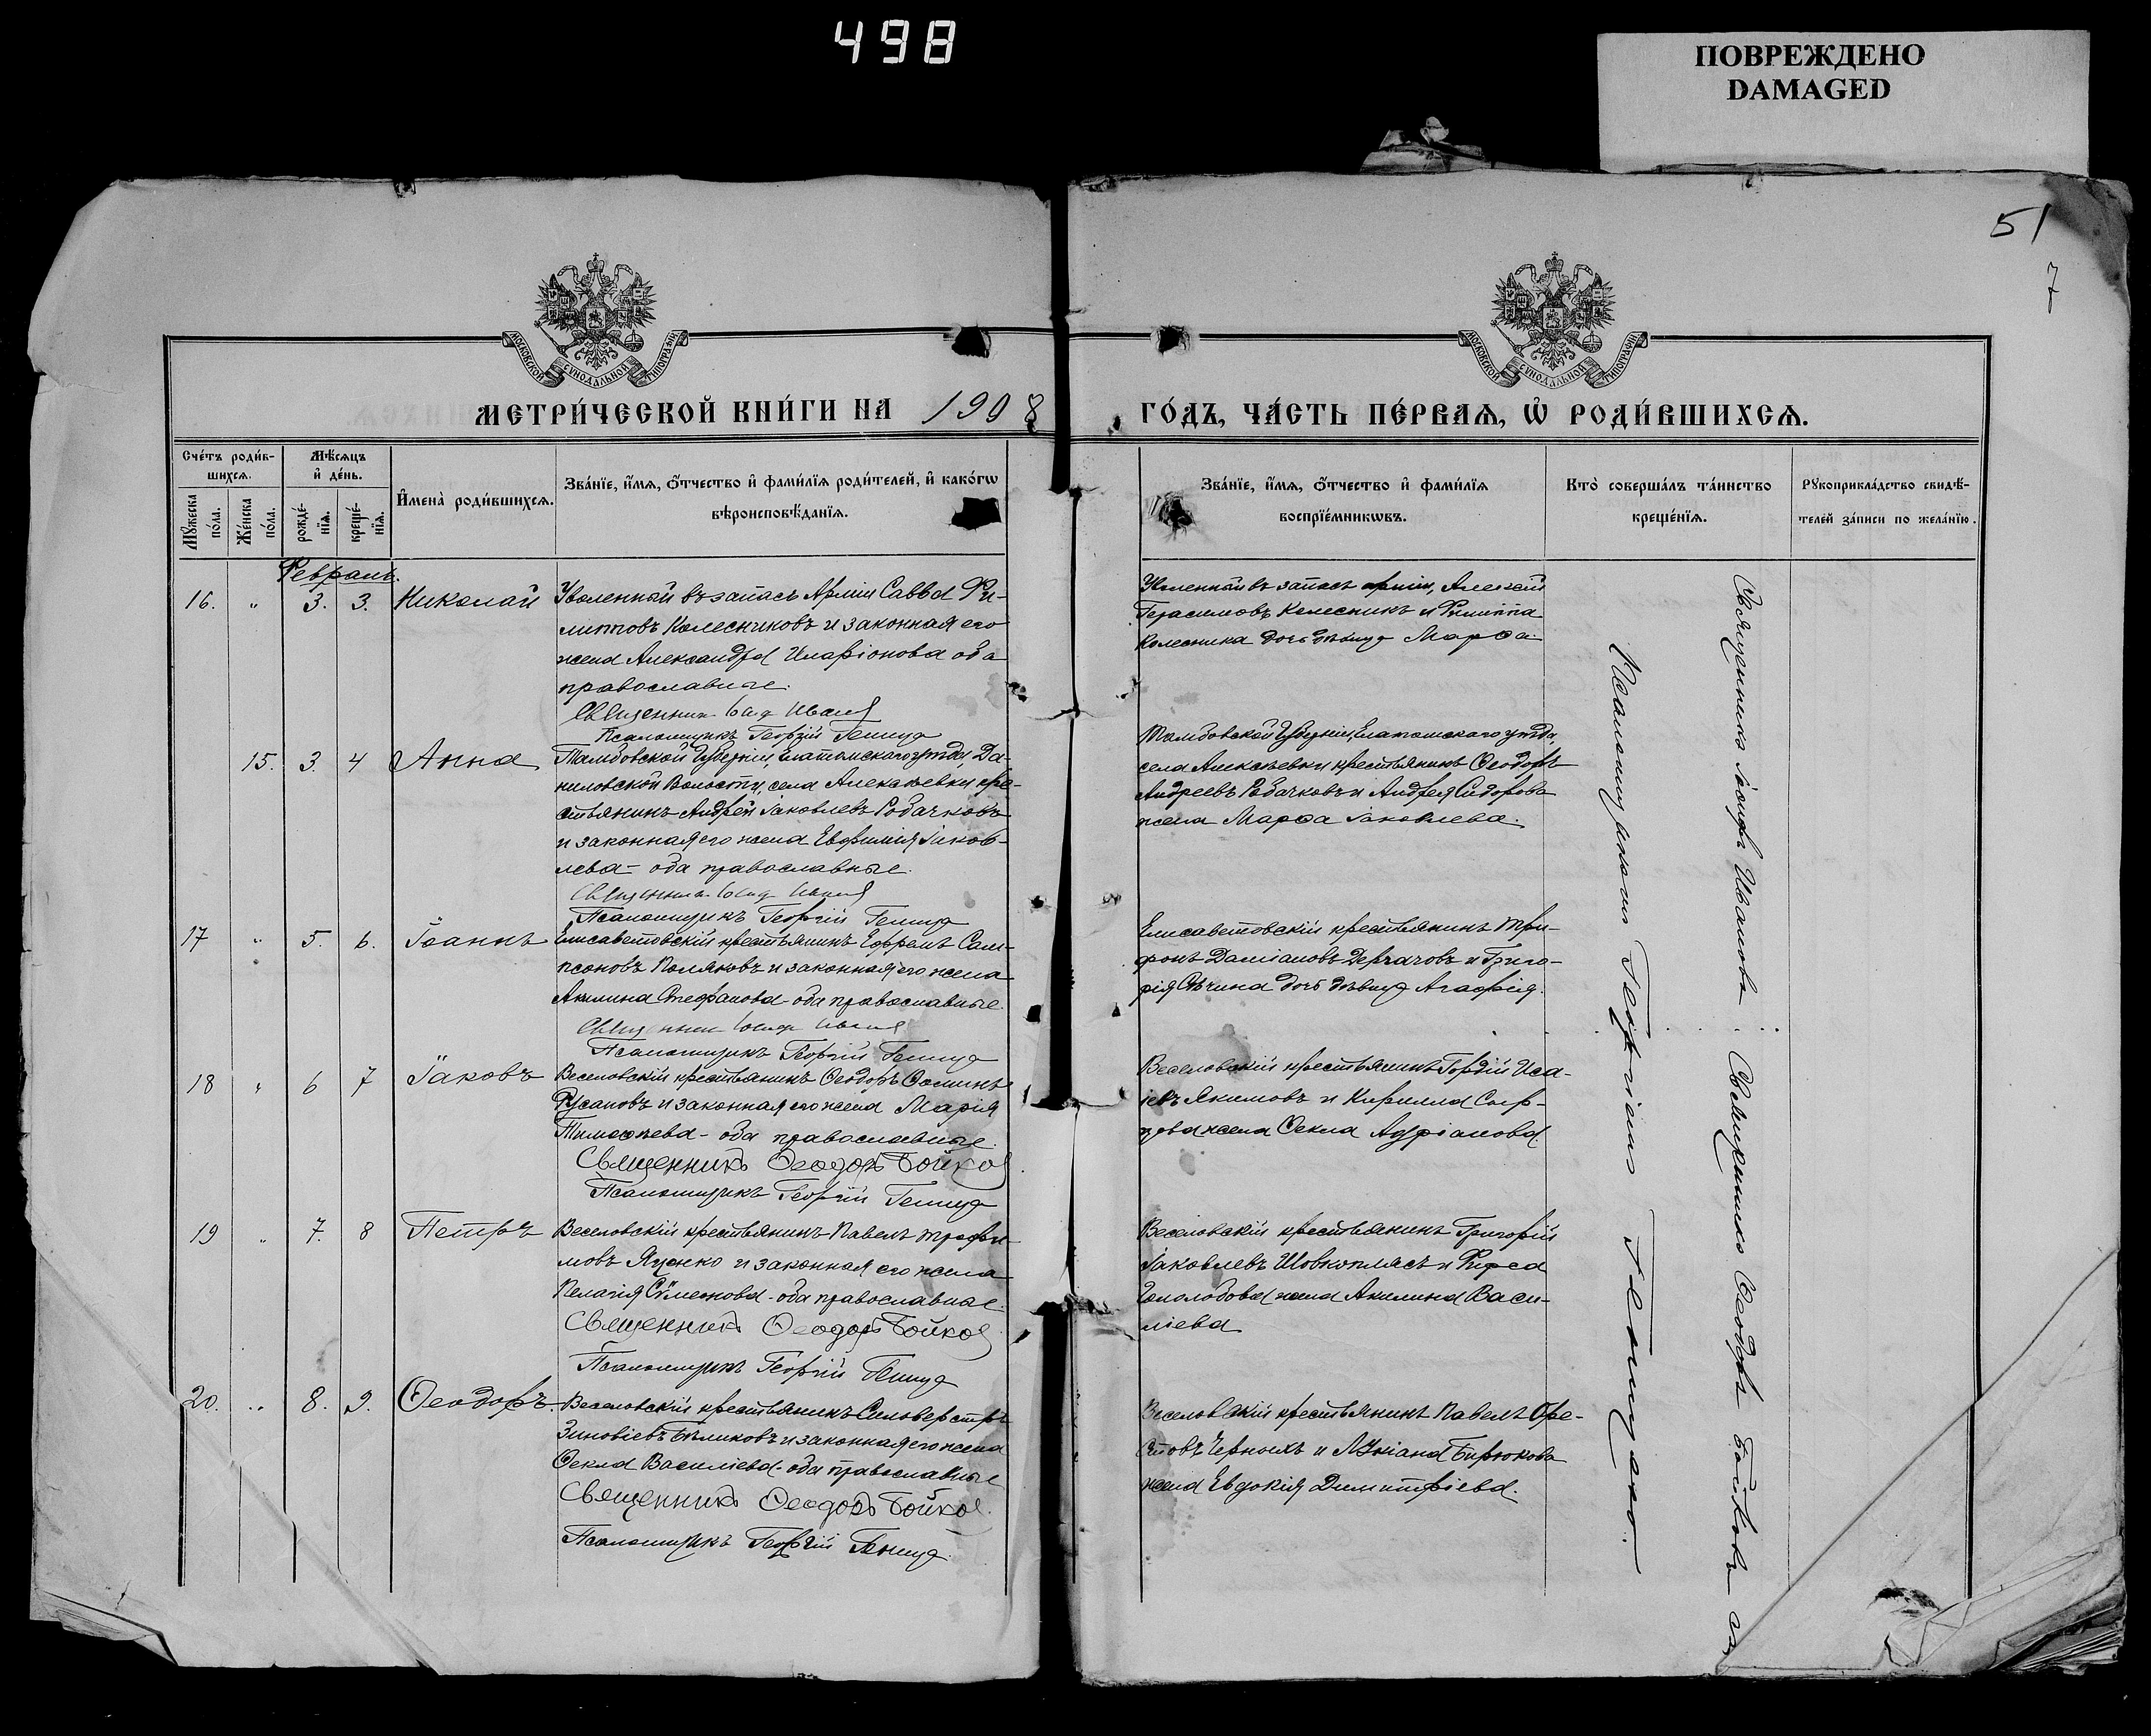 498
ПОВРЕЖДЕНО
DAMAGED
51
7
МОСКОВСКОЙ СѴНОДАЛЬНОЙ ТИПОГРАФІИ
МОСКОВСКОЙ СѴНОДАЛЬНОЙ ТИПОГРАФІИ
МЕТРИ́ЧЕСКОЙ КНИ́ГИ НА 1908
ГО́ДЪ, ЧА́СТЬ ПЕ́РВАѦ, Ѡ҆ РОДИ́ВШИХСѦ.
Сче́тъ роди́в-
шихсѧ.
Мѣ́сѧцъ
и҆ де́нь.
Мꙋ́жеска
по́ла.
Же́нска
по́ла.
рожде́-
нїѧ.
креще́-
нїѧ.
И҆мена̀ роди́вшихсѧ.
Зва́нїе, и҆́мѧ, ѻ҆́тчество и҆ фами́лїѧ роди́телей, и҆ како́гѡ
вѣроисповѣ́данїѧ.
Зва́нїе, и҆́мѧ, ѻ҆́тчество и҆ фами́лїѧ
воспрїе́мникѡвъ.
Кто̀ соверша́лъ та́инство
креще́нїѧ.
Рꙋкоприкла́дство свидѣ́-
телей за́писи по жела́нїю.
Февраль.
16. " 3. 3. Николай Уволенный въ запасъ Арміи Савва Фи-
липповъ Колесниковъ и законная его
жена Александра Иларіонова оба
православные.
Священникъ Іосифъ Ивановъ
Псаломщикъ Георгій
Уволенный въ запасъ арміи, Алексей
Герасимовъ Колесникъ и Филиппа
Колесника дочь дѣвица Марѳа.
15. 3. 4 Анна Тамбовской Губерніи, Елатомскаго уѣзда, Да-
ниловской Волости, села Алексѣевки кре-
стьянинъ Андрей Іаковлевъ Робачковъ
и законная его жена Евфимія Іаков-
лева - оба православные.
Священникъ Іосифъ Ивановъ
Псаломщикъ Георгій
Тамбовской Губерніи, Елатомскаго уѣзда,
села Алексѣевки крестьянинъ Ѳеодоръ
Андреевъ Робачковъ и Андрея Сидорова
жена Марѳа Іаковлева.
17 " 5. 6. Іоаннъ Елисаветовскій крестьянинъ Ефремъ Сам-
псоновъ Поляковъ и законная его жена
Акилина Стефанова оба православные.
Священникъ Іосифъ Ивановъ
Псаломщикъ Георгій
Елисаветовскій крестьянинъ Три-
фонъ Даміановъ Дергачовъ и Григо-
рія дочь дѣвица Агафія.
18 " 6 7 Іаковъ Веселовскій крестьянинъ Ѳеодоръ Ѳоминъ
Русановъ и законная его жена Марія
Тимоѳеева - оба православные.
Священникъ Ѳеодоръ Бойковъ.
Псаломщикъ Георгій
Веселовскій крестьянинъ Гордій Иса-
іевъ Якимовъ и Кирилла Сыр-
цова жена Ѳекла Адріанова
19 " 7. 8 Петръ Веселовскій крестьянинъ Павелъ Трофи-
мовъ Яценко и законная его жена
Пелагія Сѵмеонова - оба православные.
Священникъ Ѳеодоръ Бойковъ
Псаломщикъ Георгій
Веселовскій крестьянинъ Григорій
Іаковлевъ Шовкоплясъ и Фирса
жена Акилина Васи-
ліева
20. " 8. 9. Ѳеодоръ. Веселовскій крестьянинъ Сильверстръ
Зиновіевъ Бѣликовъ и законная его жена
Ѳекла Василіева - оба православные
Священникъ Ѳеодоръ Бойковъ.
Псаломщикъ Георгій
Веселовскій крестьянинъ Павелъ Оре-
стовъ Черныхъ и Лукіана Бирюкова
жена Евдокія Димитріева.
Священникъ Іосифъ Ивановъ Священникъ Ѳеодоръ Бойковъ
Георгіемъ